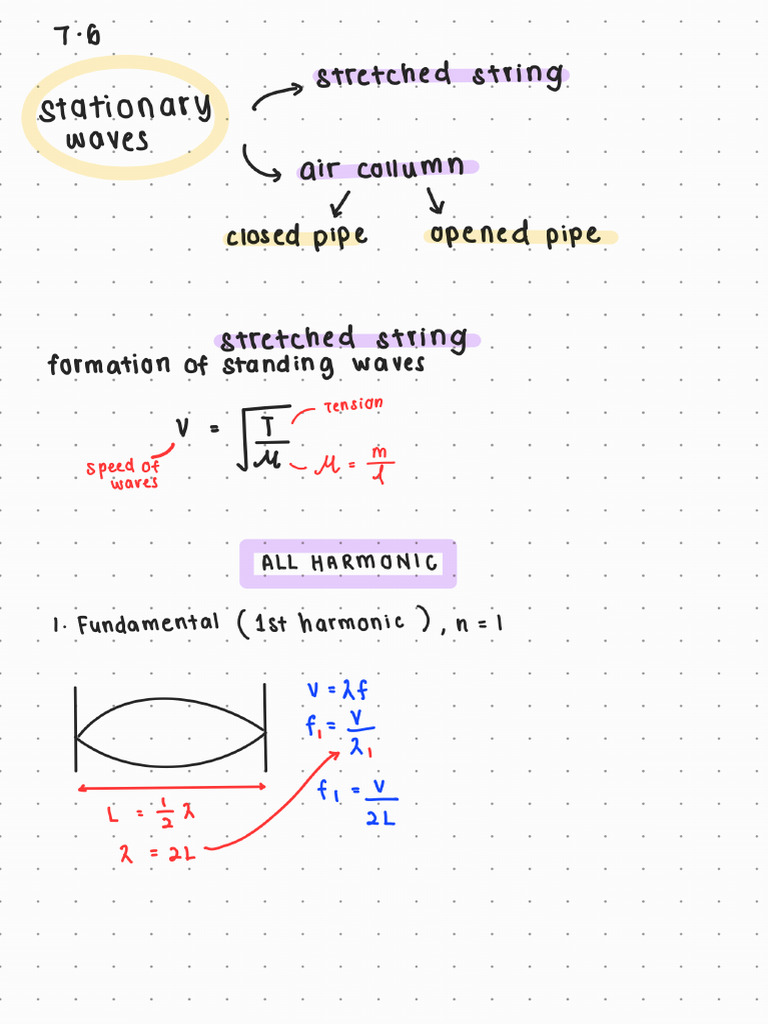 7.6
stationary
waves
stretched string
air collumn
closed pipe opened pipe
stretched string
formation of standing waves
V = √T/μ
Tension
speed of
waves
μ = m/l
ALL HARMONIC
1. Fundamental (1st harmonic), n = 1
V = λf
f₁ = V/λ₁
f₁ = V/2L
L = 1/2 λ
λ = 2L